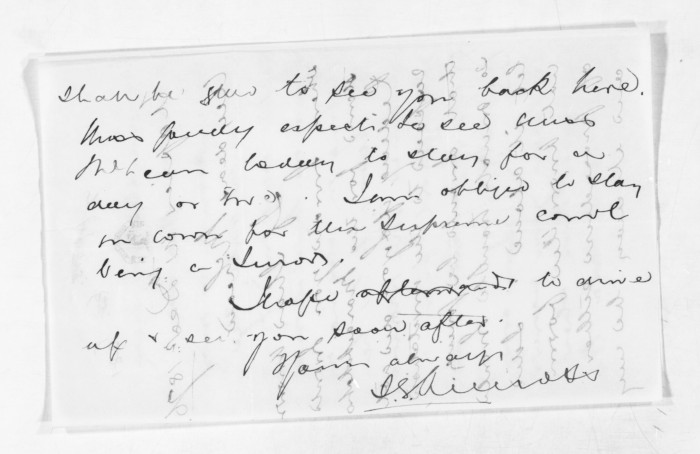 shall be glad to see you back here.
Miss Purdy expects to see Miss
McLean today to stay for a
day or two. I am obliged to stay
in town for the Supreme Court
being a Juror.
I hope afterwards to drive
up & see you soon after.
Yours always